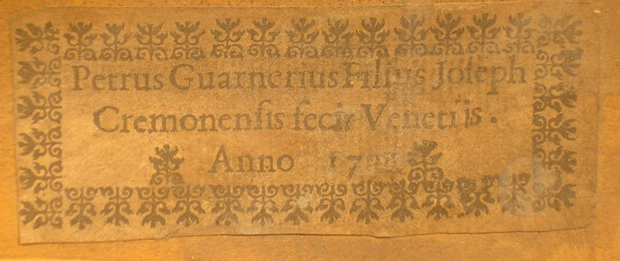 Petrus Guarnerius Filius Joſeph
Cremonenſis fecit Venetiis.
Anno